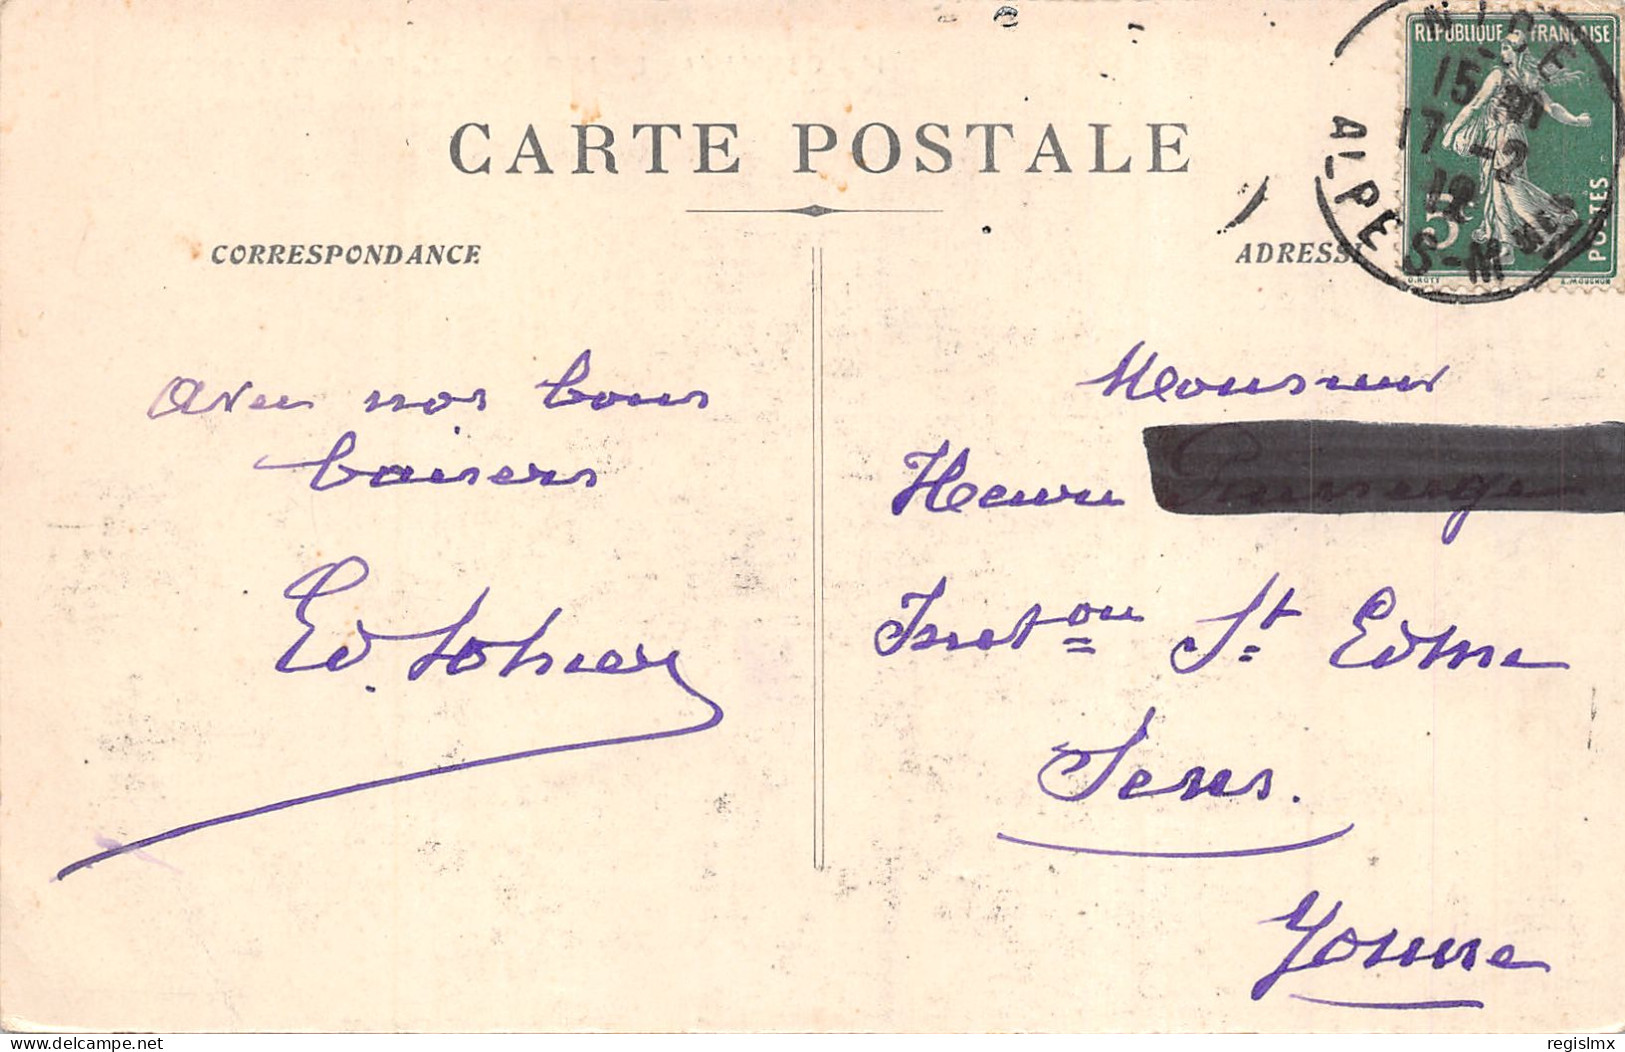 CARTE POSTALE
CORRESPONDANCE
ADRESSE
REPUBLIQUE FRANÇAISE
POSTES
5c
O.ROTY
E.MOUCHON
NICE
15
17 -2
12
ALPES-MMES
Avec nos bons
baisers
Ed. Lohier
Monsieur
Henri
Inston St Edme
Sens.
Yonne
delcampe.net
regislmx